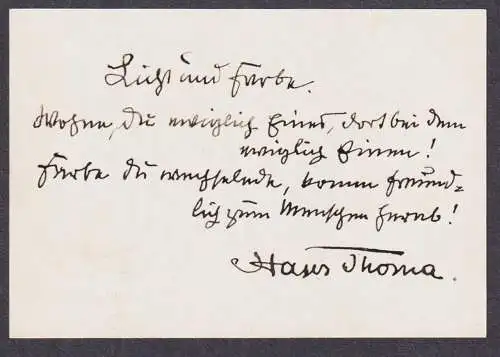 Licht und Farbe.
Wohne, du ewiglich Eines, dort bei dem
ewiglich Einen!
Farbe du wechselnde, komm freund=
lich zum Menschen herab!
Hans Thoma.